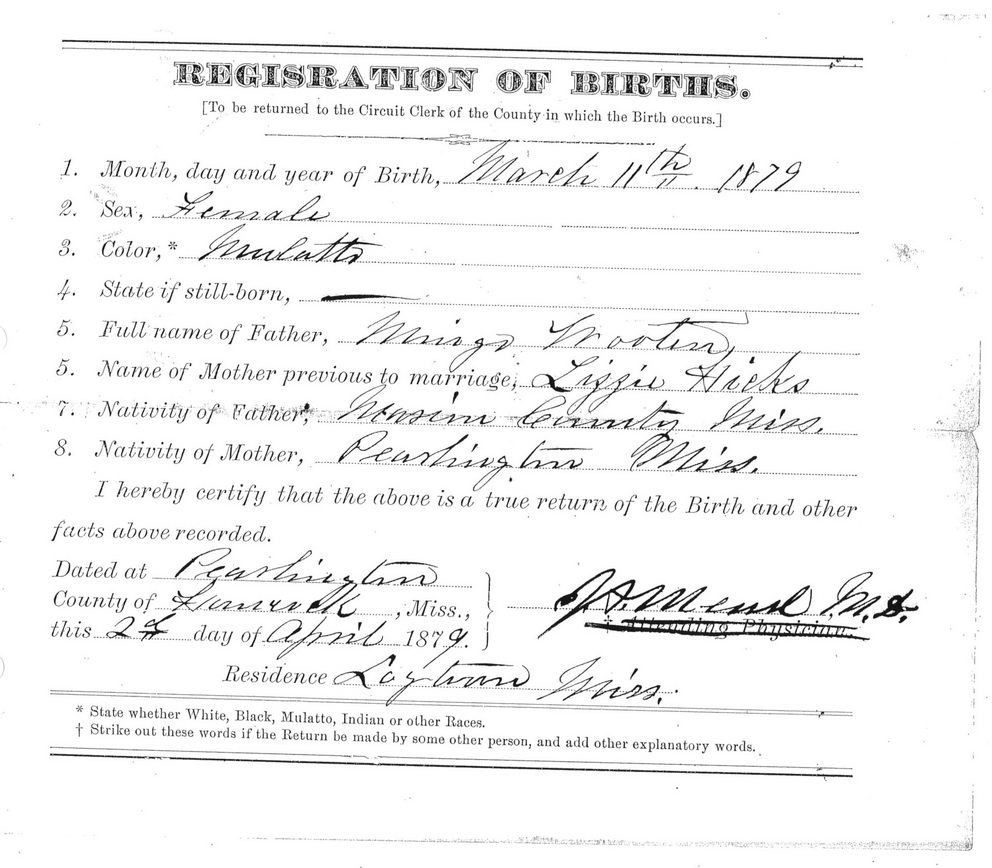 REGISRATION OF BIRTHS.
[To be returned to the Circuit Clerk of the County in which the Birth occurs.]
1. Month, day and year of Birth, March 11th 1879
2. Sex, Female
3. Color,* Mulatto
4. State if still-born, —
5. Full name of Father, Mingo Wooten
5. Name of Mother previous to marriage, Lizzie Hicks
7. Nativity of Father, County Miss.
8. Nativity of Mother, Pearlington Miss.
I hereby certify that the above is a true return of the Birth and other
facts above recorded.
Dated at Pearlington
County of Hancock, Miss.,
this 2d day of April 1879.
Mead M.D.
† Attending Physician.
Residence Miss.
* State whether White, Black, Mulatto, Indian or other Races.
† Strike out these words if the Return be made by some other person, and add other explanatory words.